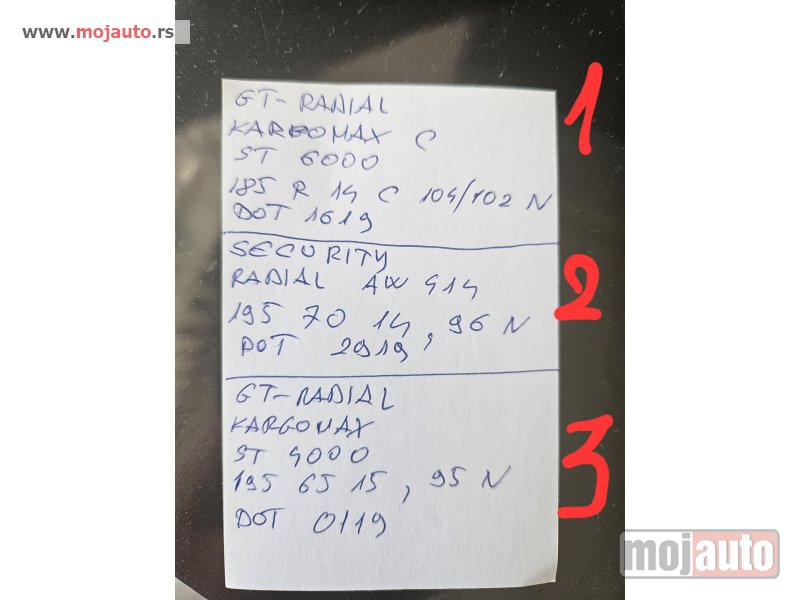 www.mojauto.rs
GT-RADIAL
KARGOMAX C
ST 6000
185 R 14 C 104/102 N
DOT 1619
1
SECURITY
RADIAL AW 414
195 70 14, 96 N
DOT 2919,
2
GT-RADIAL
KARGOMAX
ST 4000
195 65 15, 95 N
DOT 0119
3
mojauto